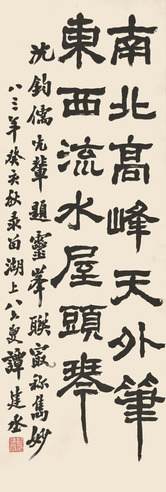 南北高峰天外筆
東西流水屋頭琴
沈鈞儒先輩題靈峯聯寂称雋妙
八三年癸亥秋录西湖上八六叟譚建丞